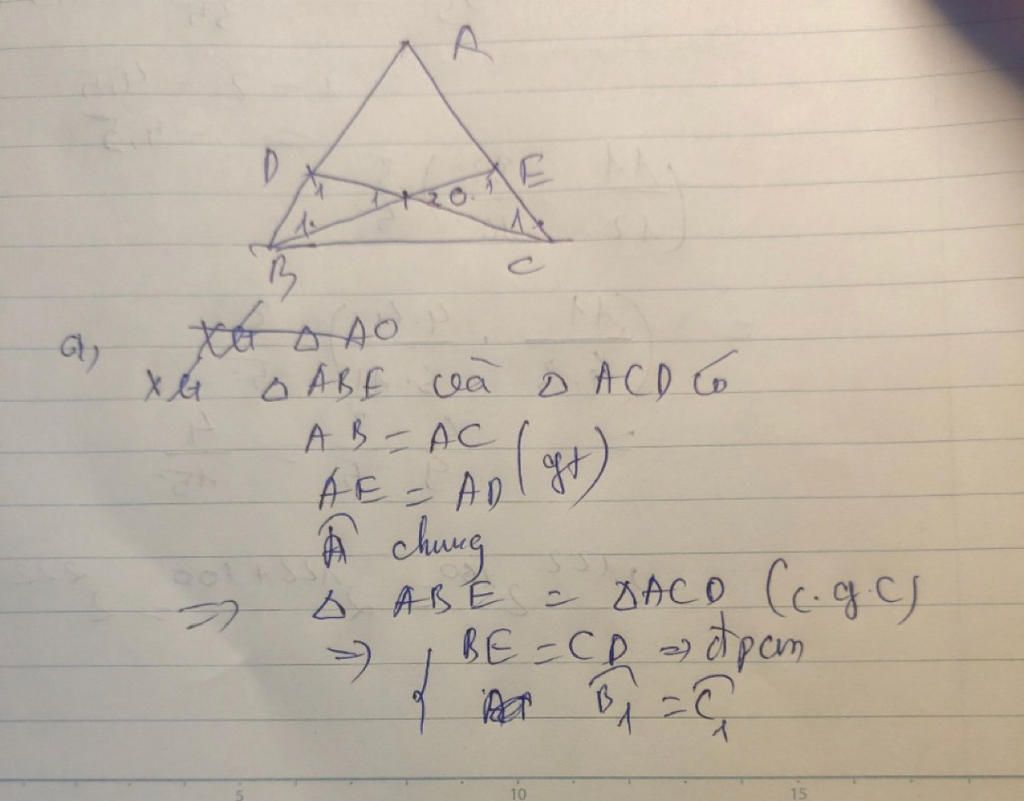 A
D E
1 1 2 O 1
1 1
B C
a, XG △ AO
XG △ ABE và △ ACD có
AB = AC
AE = AD (gt)
Â chung
=> △ ABE = △ACD (c.g.c)
=> { BE = CD => đpcm
B̂₁ = Ĉ₁
5 10 15